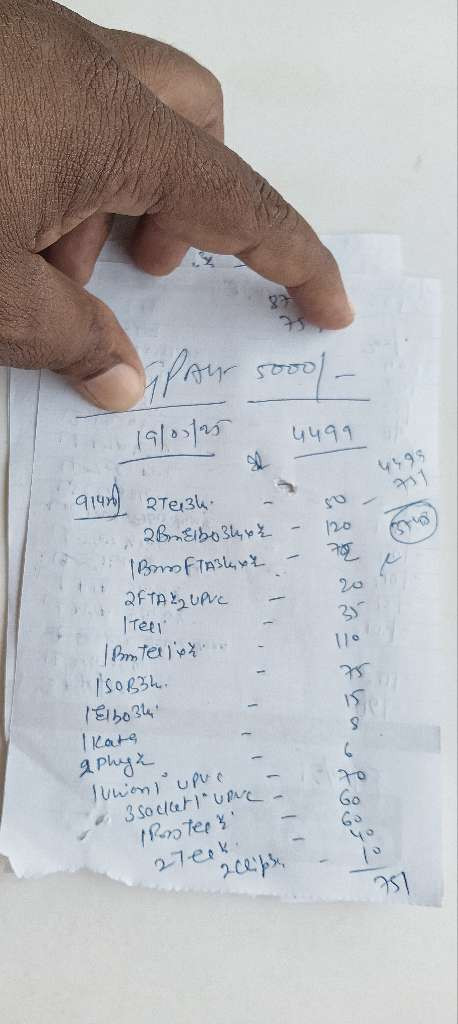 87
75
GPAY 5000/-
19/03/25 4499
4499
751
3748
2Tee3/4. - 50
2BmElbo3/4x1/2 - 120
1BmmFTA3/4x1/2 - 75
2FTA1/2UPVC 20
1Tee1" - 35
1BmTee1x1/2 - 110
1SOB3/4. - 75
1Elbo3/4" - 15
1Kata - 8
2Plug1/2 - 6
1Union1" UPVC - 70
3Socket1" UPVC - 60
1BrosTee1/2" - 60
2Tee1/2. - 40
2clip3/4 - 10
751